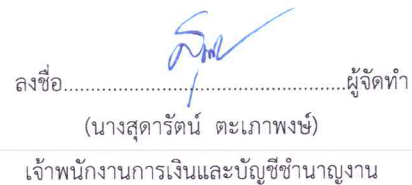 ลงชื่อ................................................ผู้จัดทำ
(นางสุดารัตน์ ตะเภาพงษ์)
เจ้าพนักงานการเงินและบัญชีชำนาญงาน